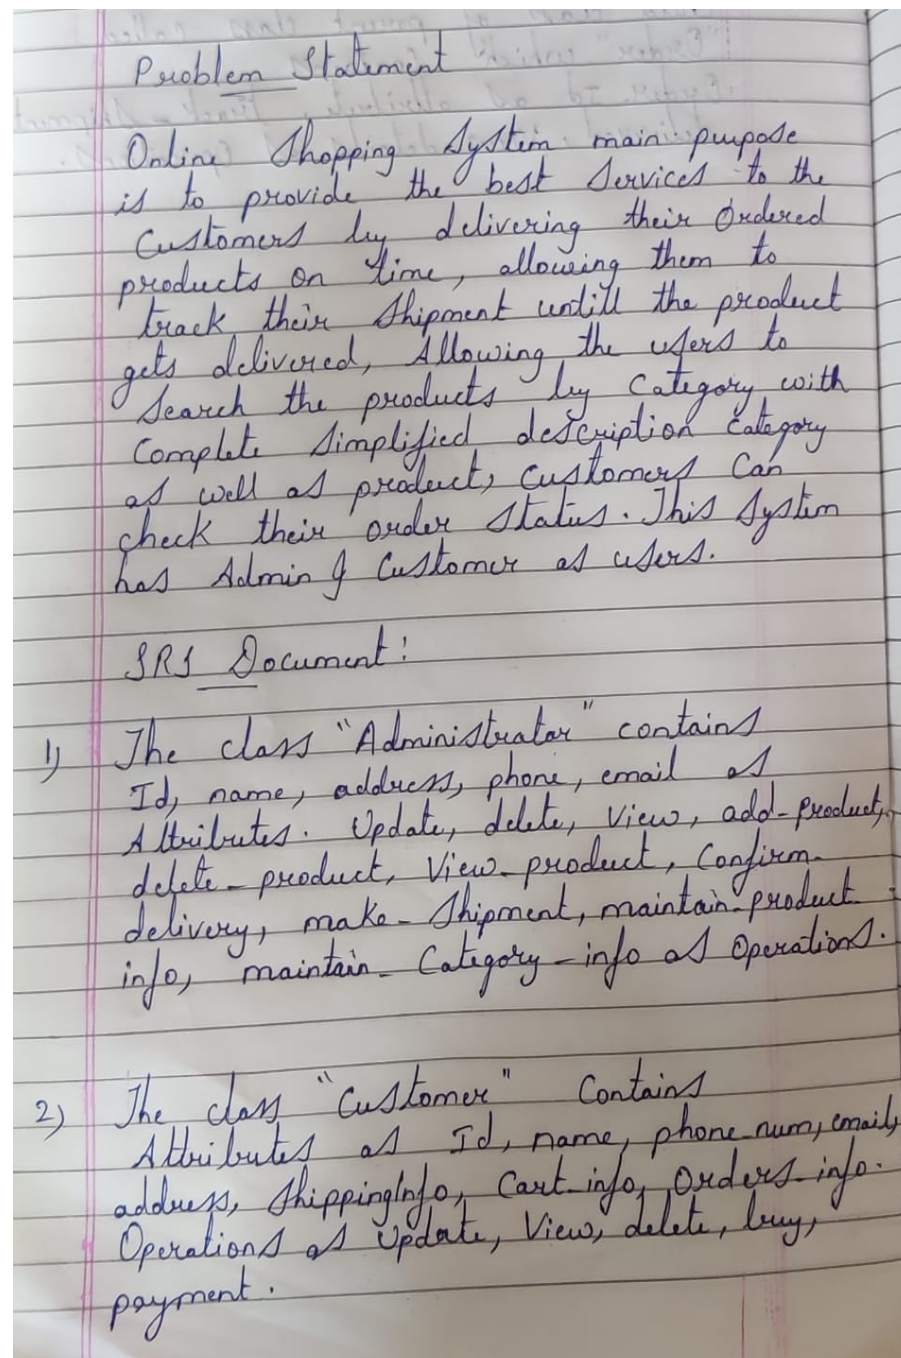 Problem Statement
Online Shopping System main purpose
is to provide the best Services to the
Customers by delivering their Ordered
products on time, allowing them to
track their Shipment untill the product
gets delivered, Allowing the users to
Search the products by Category with
Complete Simplified description category
as well as product, Customers Can
check their order Status. This System
has Admin & Customer as users.
SRS Document:
1) The class "Administrator" contains
Id, name, address, phone, email as
Attributes. Update, delete, View, add-product,
delete-product, View-product, Confirm-
delivery, make-Shipment, maintain-product-
info, maintain-Category-info as Operations.
2) The class "Customer" Contains
Attributes as Id, name, phone-num, email,
address, ShippingInfo, Cart-info, Orders-info.
Operations as Update, View, delete, buy,
payment.